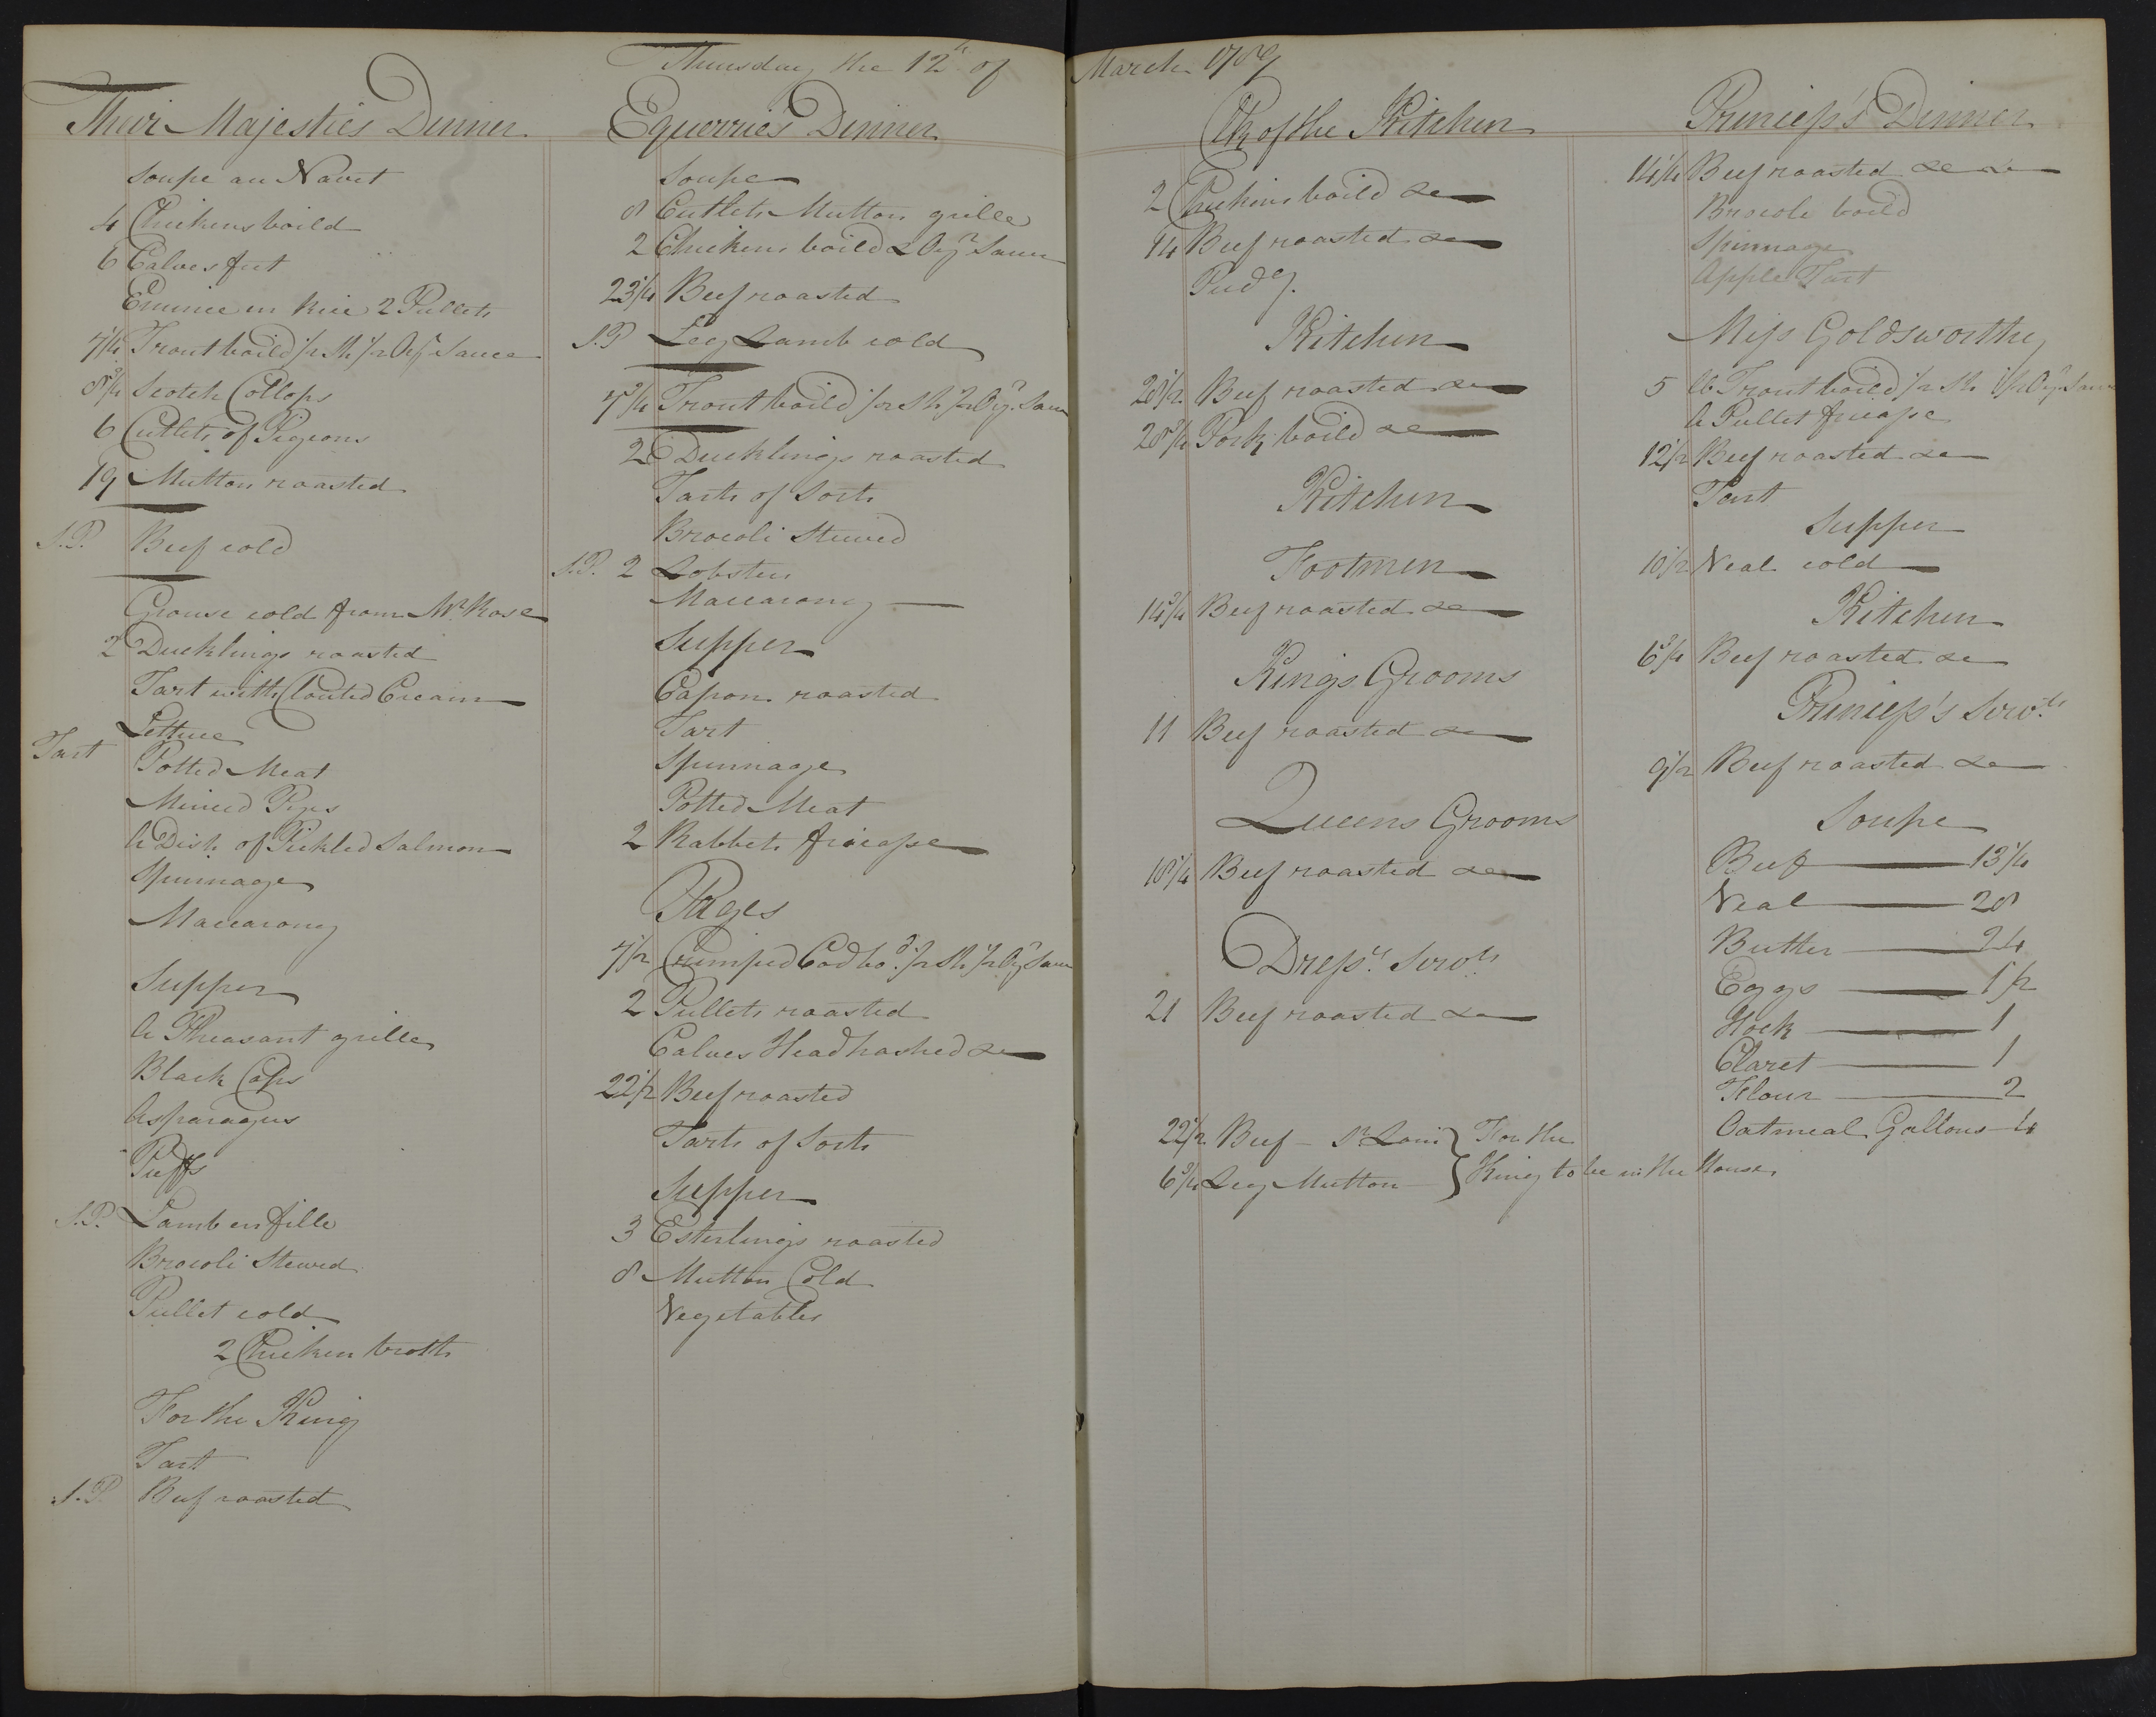 Thursday the 12th of March 1789
Their Majesties Dinner
Soupe au Navet
4 Chickens boild
6 Calves feet
Emince en Rice 2 Pullets
7 1/4 Trout boild 1/2 Sh 1/2 Oyr Sauce
8 3/4 Scotch Collops
6 Cutlets of Pigeons
19 Mutton roasted
S.P. Beef cold
Grouse cold from Mr Rose
2 Ducklings roasted
Tart with Clouted Cream
Lettuce
Tart Potted Meat
Minced Pyes
A Dish of Pickled Salmon
Spinnage
Maccarony
Supper
A Pheasant grille
Black Caps
Asparagus
Puffs
S.P. Lamb en fille
Brocoli Stewed
Pullet cold
2 Chicken broth
For the King
Tart
S.P. Beef roasted
Equerries Dinner
Soupe
8 Cutlets Mutton grille
2 Chickens boild & Oyr Sauce
23 1/4 Beef roasted
S.P. Leg Lamb cold
7 3/4 Trout boild 1/2 Sh 1/2 Oyr Sauce
2 Ducklings roasted
Tarts of Sorts
Brocoli Stewed
S.P. 2 Lobsters
Maccarony
Supper
Capon roasted
Tart
Spinnage
Potted Meat
2 Rabbets fricasse
Pages
7 1/2 Crimped Cod bod 1/2 Sh 1/2 Oyr Sauce
2 Pullets roasted
Calves Head hashed &c
22 1/2 Beef roasted
Tarts of Sorts
Supper
3 Esterlings roasted
8 Mutton Cold
Vegetables
Ck of the Kitchen
2 Chickens boild &c
14 Beef roasted &c
Pudg.
Kitchen
20 1/2 Beef roasted &c
28 3/4 Pork boild &c
Kitchen
Footmen
14 3/4 Beef roasted &c
Kings Grooms
11 Beef roasted &c
Queens Grooms
18 1/4 Beef roasted &c
Dressrs Servts
21 Beef roasted &c
22 1/2 Beef - Sr Loin } For the
6 3/4 Leg Mutton } King to be in the House
Princess's Dinner
14 1/4 Beef roasted &c &c
Brocoli boild
Spinnage
Apple Tart
Miss Goldsworthy
5 lb Trout boild 1/2 Sh 1/2 Oyr Sauce
A Pullet fricasse
12 1/2 Beef roasted &c
Tart
Supper
10 1/2 Veal cold
Kitchen
6 3/4 Beef roasted &c
Princess's Servts
9 1/2 Beef roasted &c
Soupe
Beef 13 1/4
Veal 28
Butter 24
Eggs 1 1/2
Hock 1
Claret 1
Flour 2
Oatmeal Gallons 4